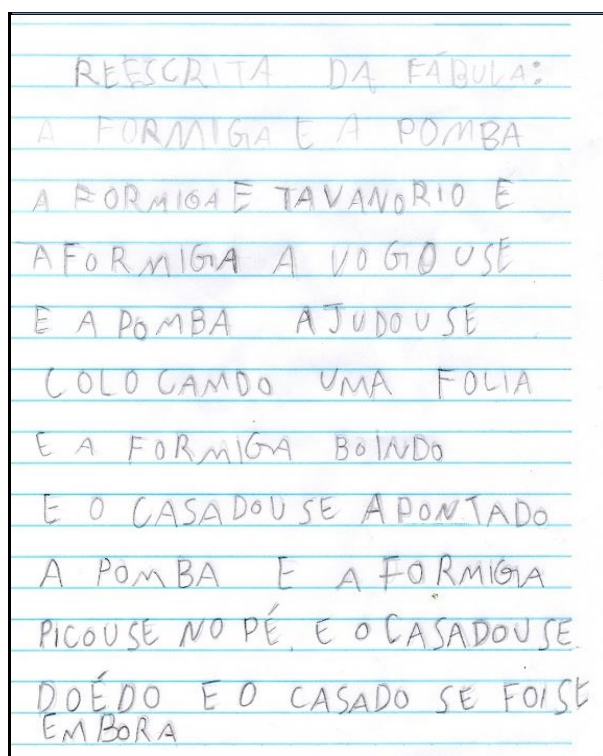 REESCRITA DA FÁBULA:
A FORMIGA E A POMBA
A FORMIGA E TAVANORIO E
A FORMIGA A VOGOUSE
E A POMBA AJUDOUSE
COLOCAMDO UMA FOLIA
E A FORMIGA BOINDO
E O CASADOUSE APONTADO
A POMBA E A FORMIGA
PICOUSE NO PÉ. E O CASADOUSE
DOÉDO E O CASADO SE FOISE
EMBORA